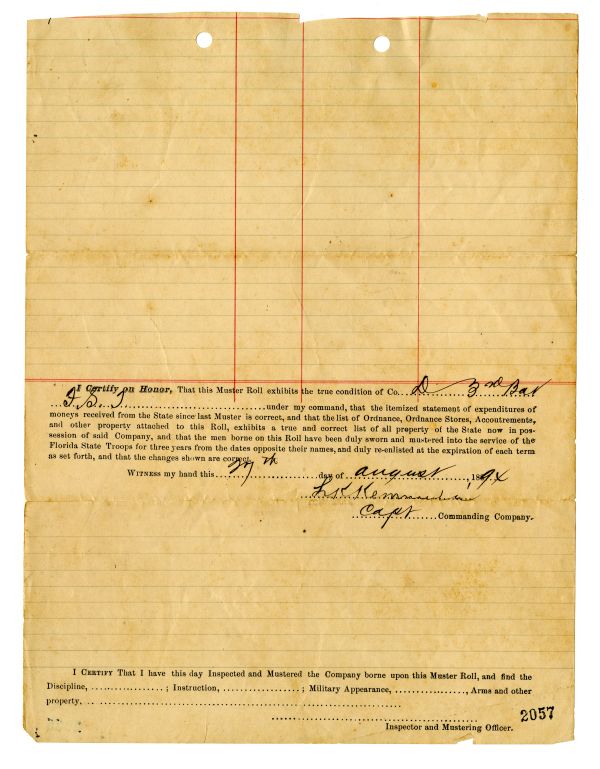 I Certify on Honor, That this Muster Roll exhibits the true condition of Co. D 3rd Bat
F. S. T. under my command, that the itemized statement of expenditures of
moneys received from the State since last Muster is correct, and that the list of Ordnance, Ordnance Stores, Accoutrements,
and other property attached to this Roll, exhibits a true and correct list of all property of the State now in pos-
session of said Company, and that the men borne on this Roll have been duly sworn and mustered into the service of the
Florida State Troops for three years from the dates opposite their names, and duly re-enlisted at the expiration of each term
as set forth, and that the changes shown are correct.
WITNESS my hand this day of august, 189
Capt Commanding Company.
I CERTIFY That I have this day Inspected and Mustered the Company borne upon this Muster Roll, and find the
Discipline, ; Instruction, ; Military Appearance, , Arms and other
property,
2057
Inspector and Mustering Officer.